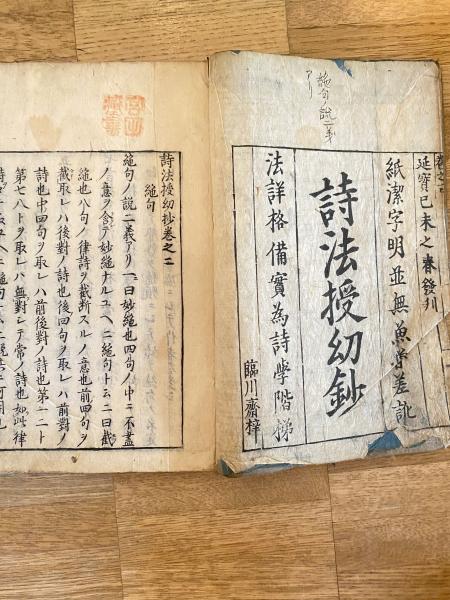 巻之二
延寶己未之春發刊
紙潔字明並無魚魯差訛
詩法授幼鈔
法詳格備實為詩學階梯
臨川齋梓
絶句ノ説二義
アリ
詩法授幼抄巻之二
絶句
絶句ノ説二義アリ一曰妙絶也四句ノ中ニ不盡
ノ意ヲ含テ妙絶ナルユヘニ絶句ト云二曰截
絶也八句ノ律詩ヲ截断スルノ意也前四句ヲ
截取レハ後對ノ詩也後四句ヲ取レハ前對ノ
詩也中四句ヲ取レハ前後對ノ詩也第一二ト
第七八トヲ取レハ無對テ常ノ詩也如此律